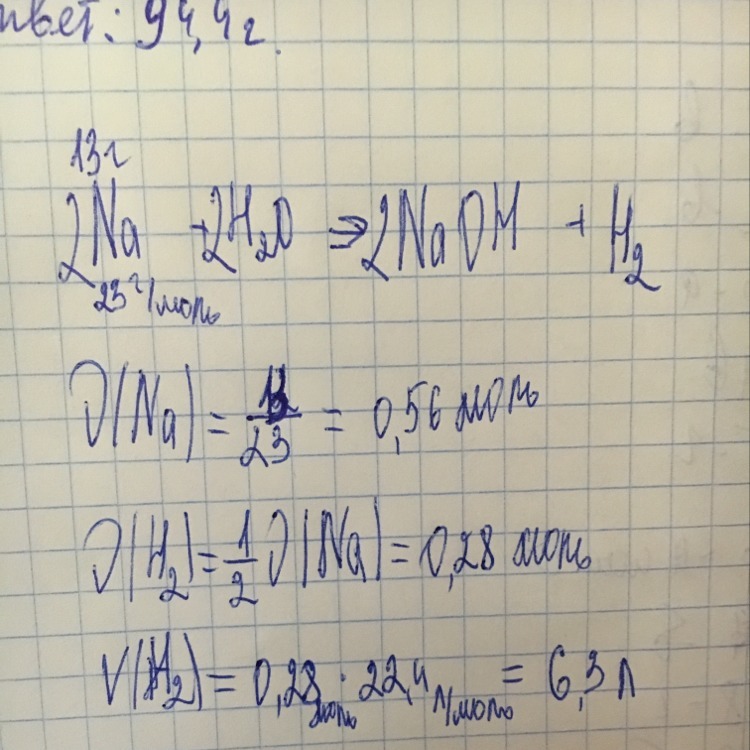 ответ: 94,4г.
13г
2Na + 2H₂O ⇒ 2NaOH + H₂
23 г/моль
ν(Na) = 13/23 = 0,56 моль
ν(H₂) = 1/2 ν(Na) = 0,28 моль
V(H₂) = 0,28 моль · 22,4 л/моль = 6,3 л